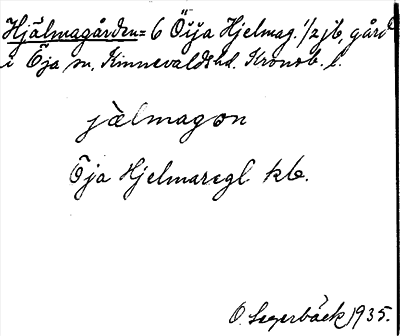 Hjälmagården = 6 Öija Hjelmag. 1/2 jb, gård
i Öja sn, Kinnevalds hd. Kronob. l.
jälmagon
Öja Hjelmaregl kb.
O. Segerbäck 1935.